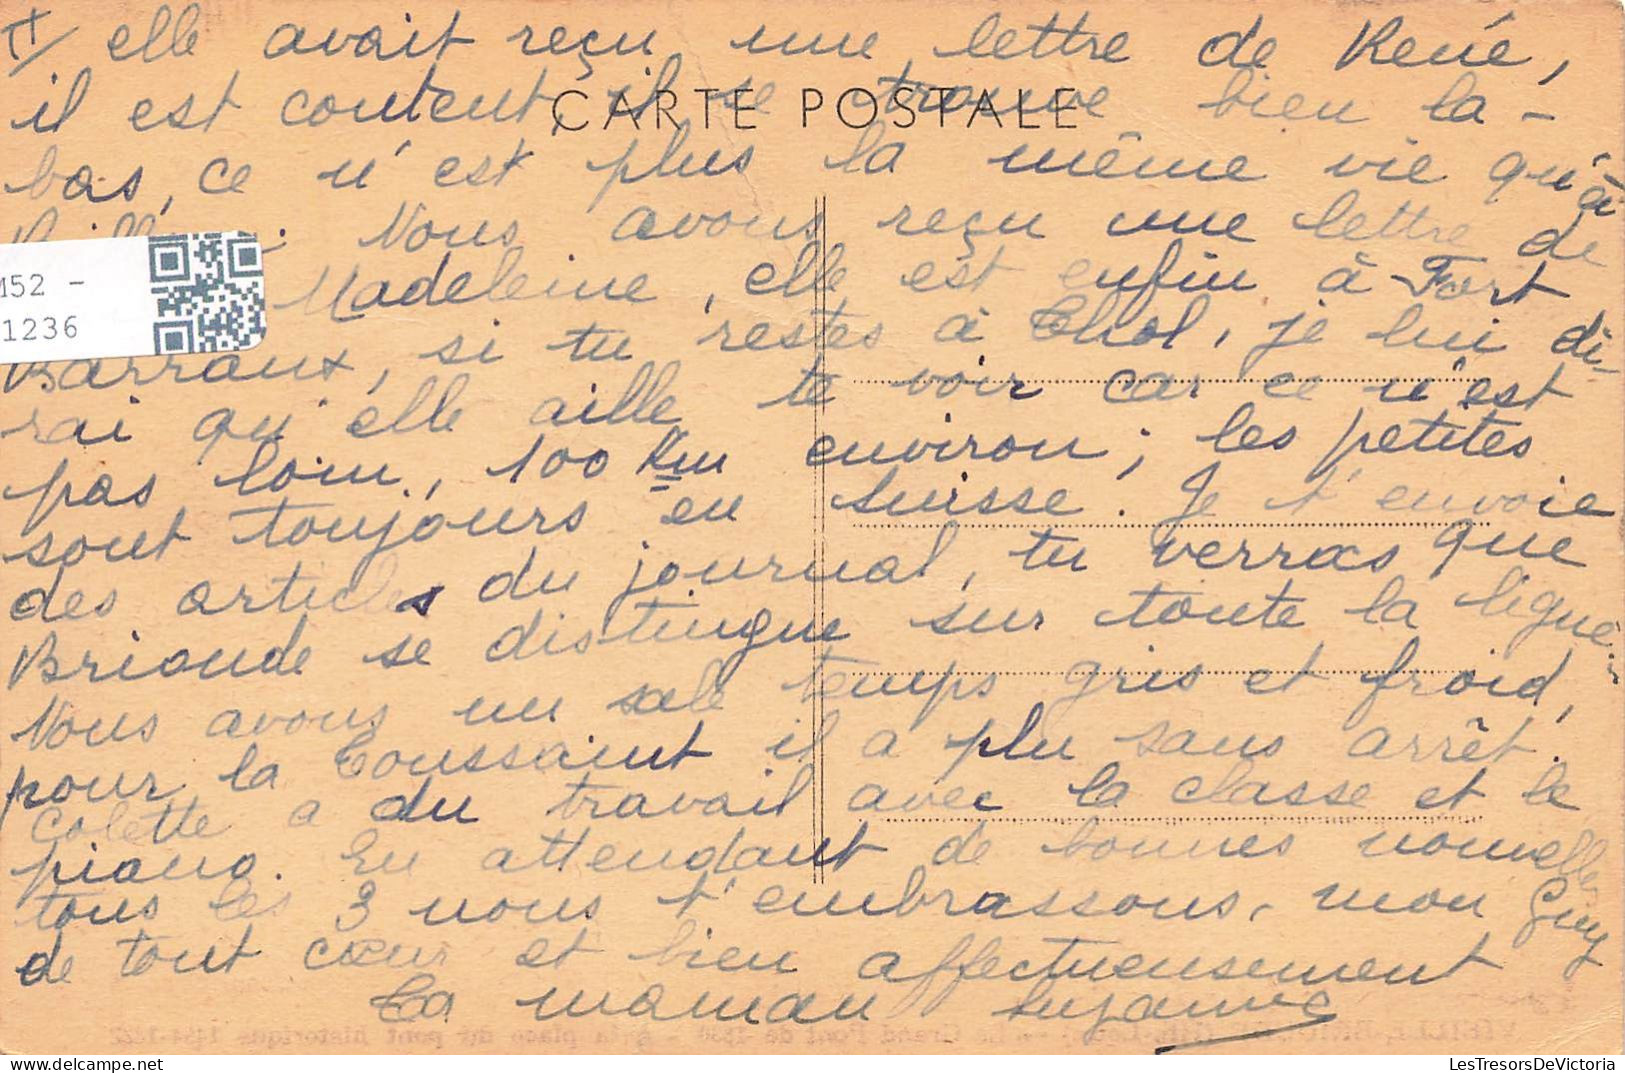 II/ elle avait reçu une lettre de René,
il est content, il se trouve bien là-
CARTE POSTALE
bas, ce n'est plus la même vie qu'à
Nous avons reçu une lettre de
Madeleine, elle est enfin à Fort
M52 -
1236
Barraux, si tu restes à Thol, je lui di-
rai qu'elle aille te voir car ce n'est
pas loin, 100 Km environ; les petites
sont toujours en Suisse. Je t'envoie
des articles du journal, tu verras que
Brioude se distingue sur toute la ligne..
Nous avons un sale temps gris et froid,
pour la Toussaint il a plu sans arrêt.
Colette a du travail avec la classe et le
piano. En attendant de bonnes nouvelles
tous les 3 nous t'embrassons, mon Guy
de tout cœur et bien affectueusement
Ta maman Suzanne
LesTresorsDeVictoria